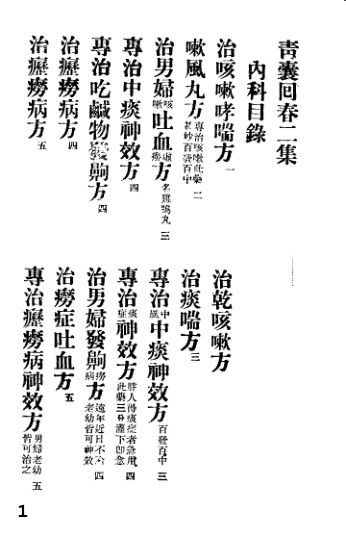 青囊回春二集
內科目錄
治咳嗽哮喘方 一
治乾咳嗽方
嗽風丸方 專治咳嗽此藥 百發百中 二
治痰喘方 三
治男婦咳嗽吐血方 三
專治中風中痰神效方 百發百中 三
專治中痰神效方 四
專治痰症神效方 胖人得痰症者急用此藥三分灌下即愈 四
專治吃鹹物發齁方 四
治男婦發齁癆病方 遠年近日不分老幼皆可神效 四
治癧癆病方 四
治癆症吐血方 五
治癧癆病方 五
專治癧癆病神效方 男婦老幼皆可治之 五
1